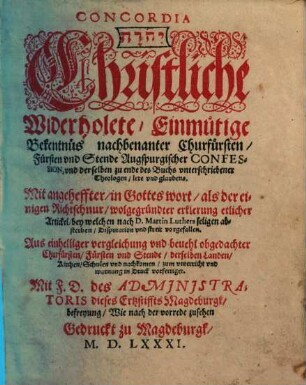 CONCORDIA
יהוה
Christliche
Widerholete / Einmütige
Bekentnüs nachbenanter Churfürsten /
Fürsten vnd Stende Augspurgischer CONFES-
SION, vnd derselben zu ende des Buchs vnterschriebener
Theologen / lere vnd glaubens.
Mit angeheffter / in Gottes wort / als der ei-
nigen Richtschnur / wolgegründter erklerung etlicher
Artickel / bey welchen nach D. Martin Luthers seligen ab-
sterben / Disputation vnd streit vorgefallen.
Aus einhelliger vergleichung vnd beuehl obgedachter
Churfürsten / Fürsten vnd Stende / derselben Landen /
Kirchen / Schulen vnd nachkomen / zum vnterricht vnd
warnung in Druck vorfertiget.
Mit F. D. des ADMINISTRA-
TORIS dieses Ertzstiffts Magdeburgk /
befreyung / Wie nach der vorrede zusehen
Gedruckt zu Magdeburgk /
M. D. LXXXI.